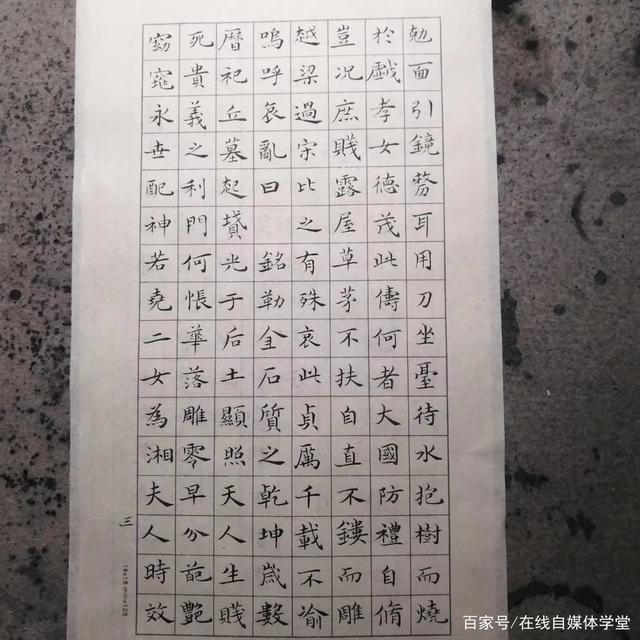 勀面引鏡剺耳用刀坐臺待水抱樹而燒
於戲孝女德茂此儔何者大國防禮自脩
豈况庶賤露屋草茅不扶自直不鏤而雕
越梁過宋比之有殊哀此貞厲千載不渝
嗚呼哀亂曰 銘勒金石質之乾坤歲數
曆祀丘墓起墳光于后土顯照天人生賤
死貴義之利門何悵華落雕零早分葩艷
窈窕永世配神若堯二女為湘夫人時效
三
18x18mmx128
百家号/在线自媒体学堂